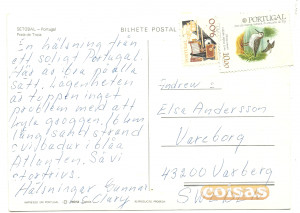 SETÚBAL — Portugal
Praia de Tróia
BILHETE POSTAL
PORTUGAL
En hälsning från
ett soligt Portugal.
Här är bra på alla
sätt. Lägenheten
är toppen inget
problem med att
kyla groggen,
lång samt strand
havsbadar i blåa
Atlanten. Så vi
stortrivs.
Hälsningar Gunnar
& Clary
Elsa Andersson
Vareborg
43200 Varberg
coisas